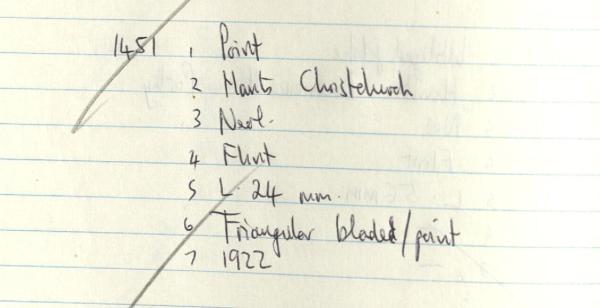 1451 1 Point
2 Hants Christchurch
3 Neol.
4 Flint
5 L. 24 mm.
6 Triangular bladed/point
7 1922